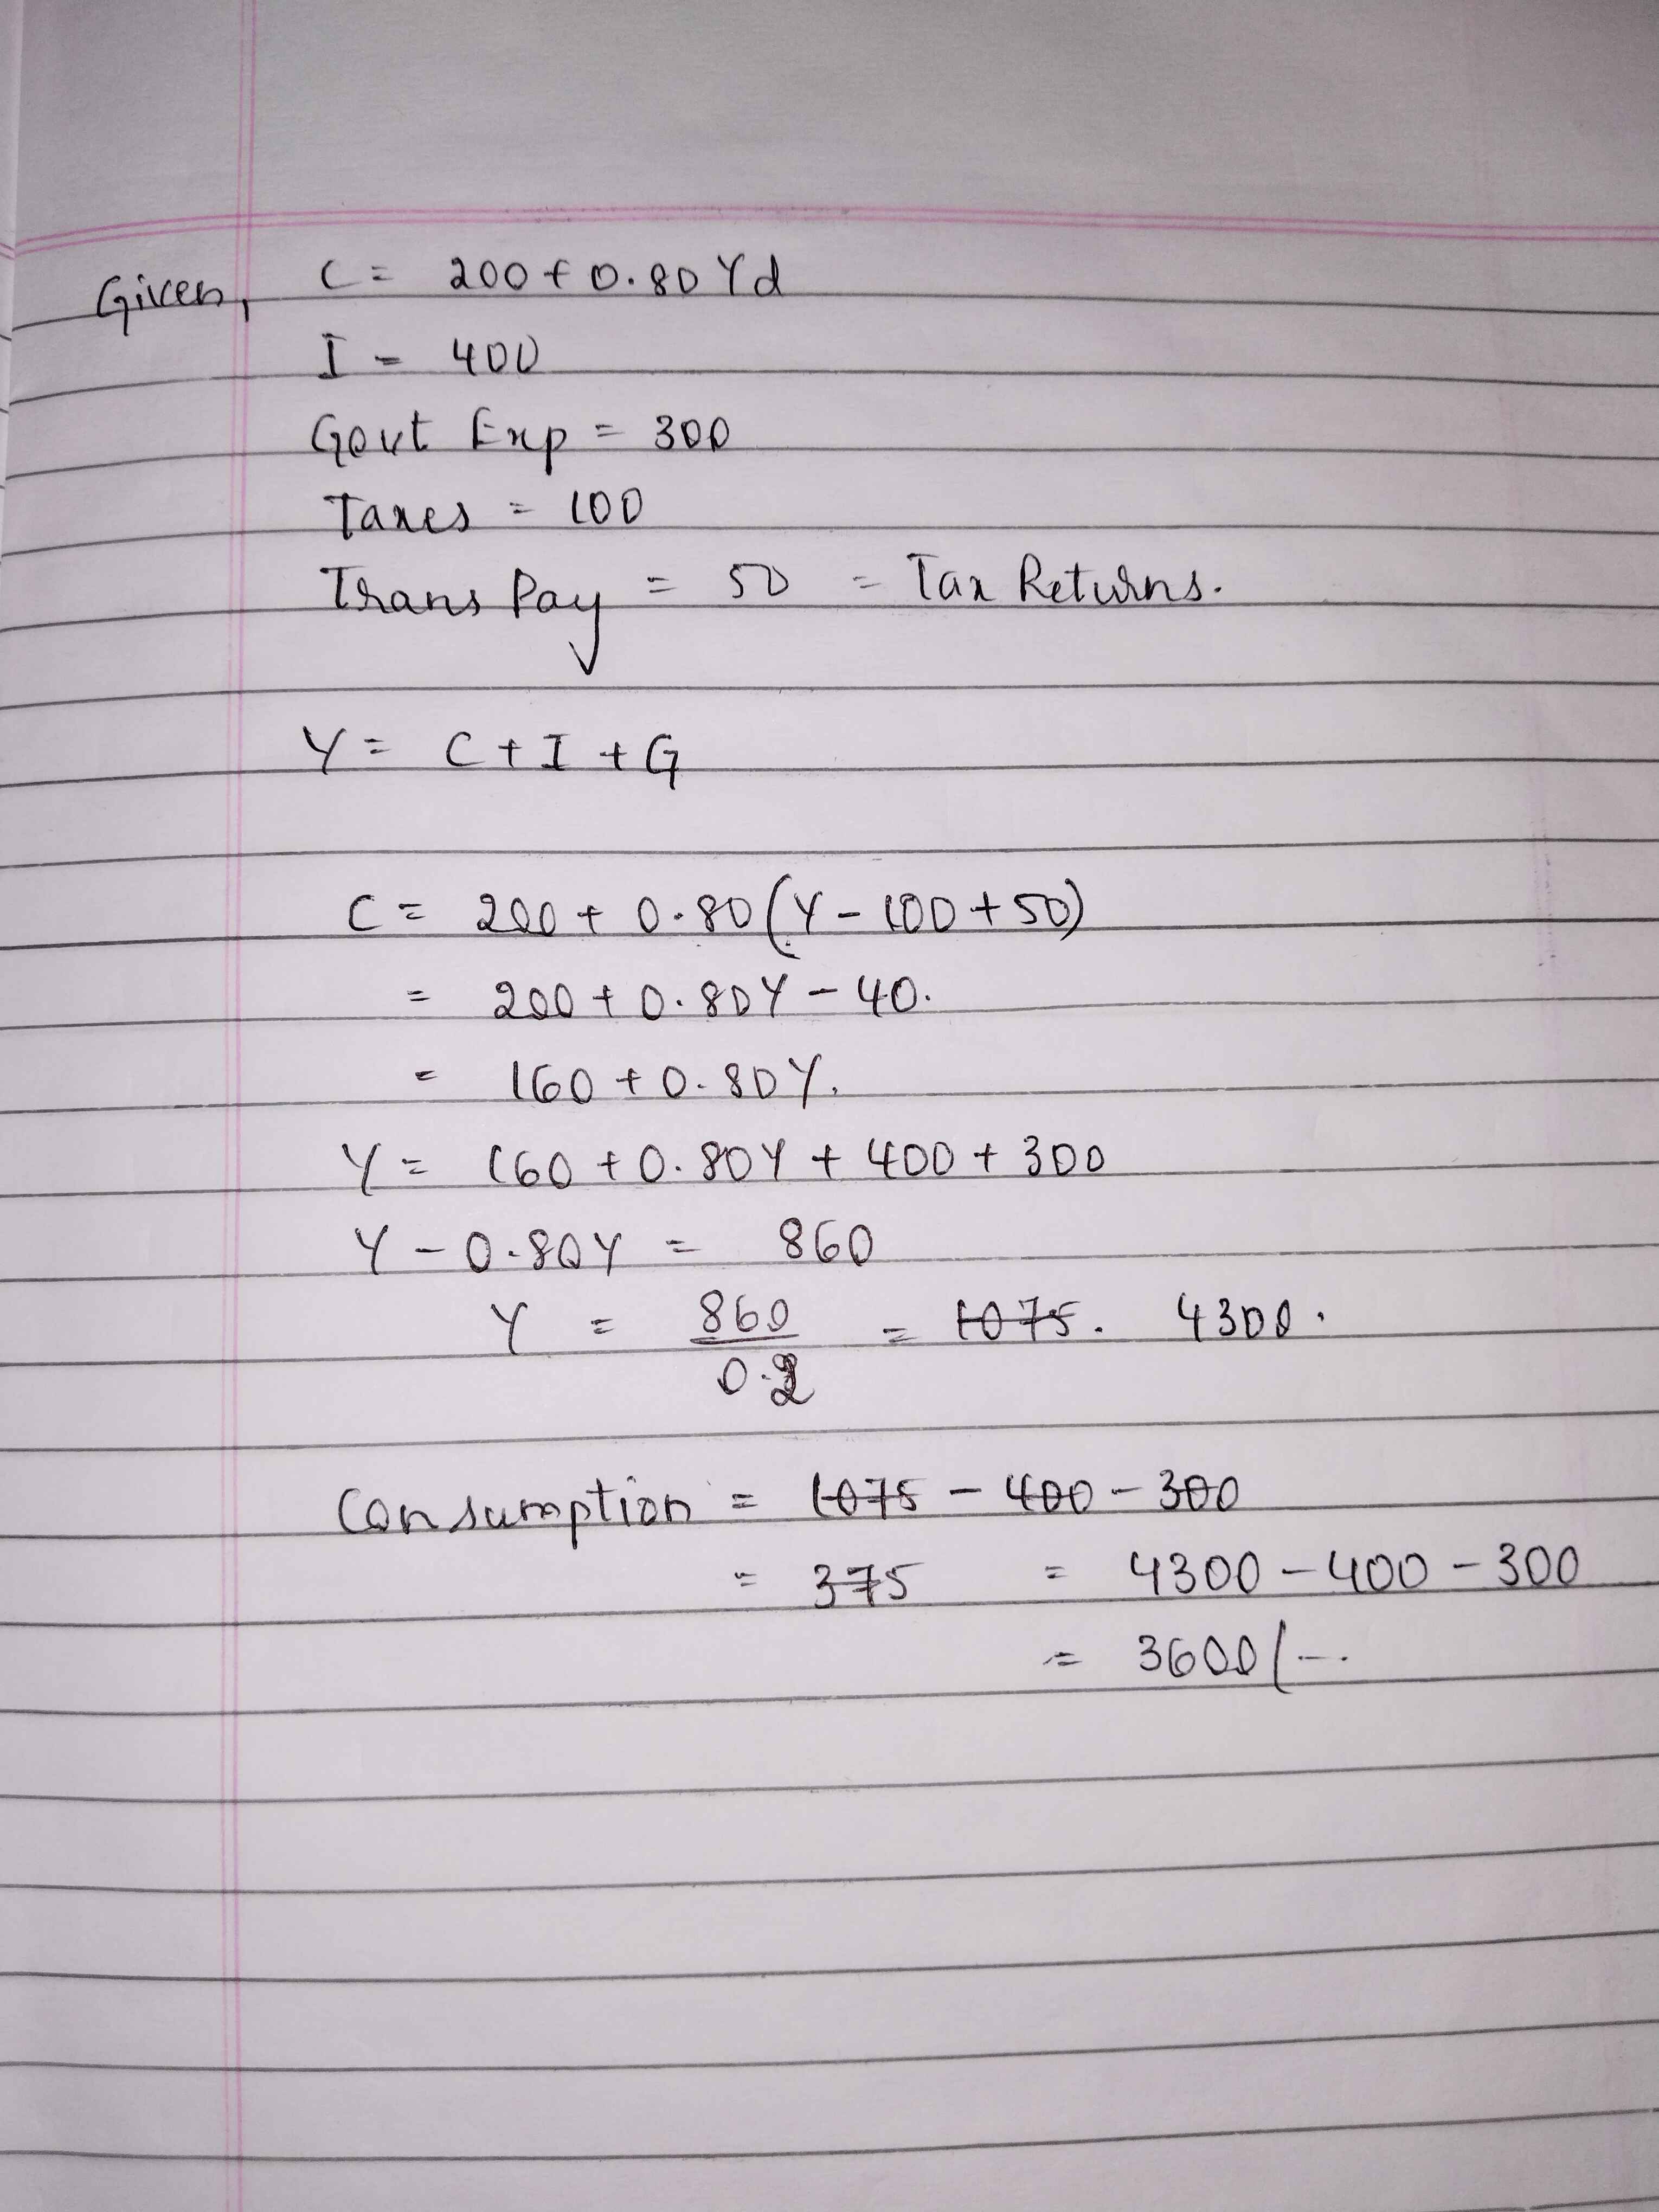 Given, C = 200 + 0.80 Yd
I = 400
Govt Exp = 300
Taxes = 100
Trans Pay = 50 = Tax Returns.
Y = C + I + G
C = 200 + 0.80 (Y - 100 + 50)
= 200 + 0.80Y - 40.
= 160 + 0.80Y.
Y = 160 + 0.80Y + 400 + 300
Y - 0.80Y = 860
Y = 860 / 0.2 = 1075. 4300.
Consumption = 1075 - 400 - 300
= 375 = 4300 - 400 - 300
= 3600/-.